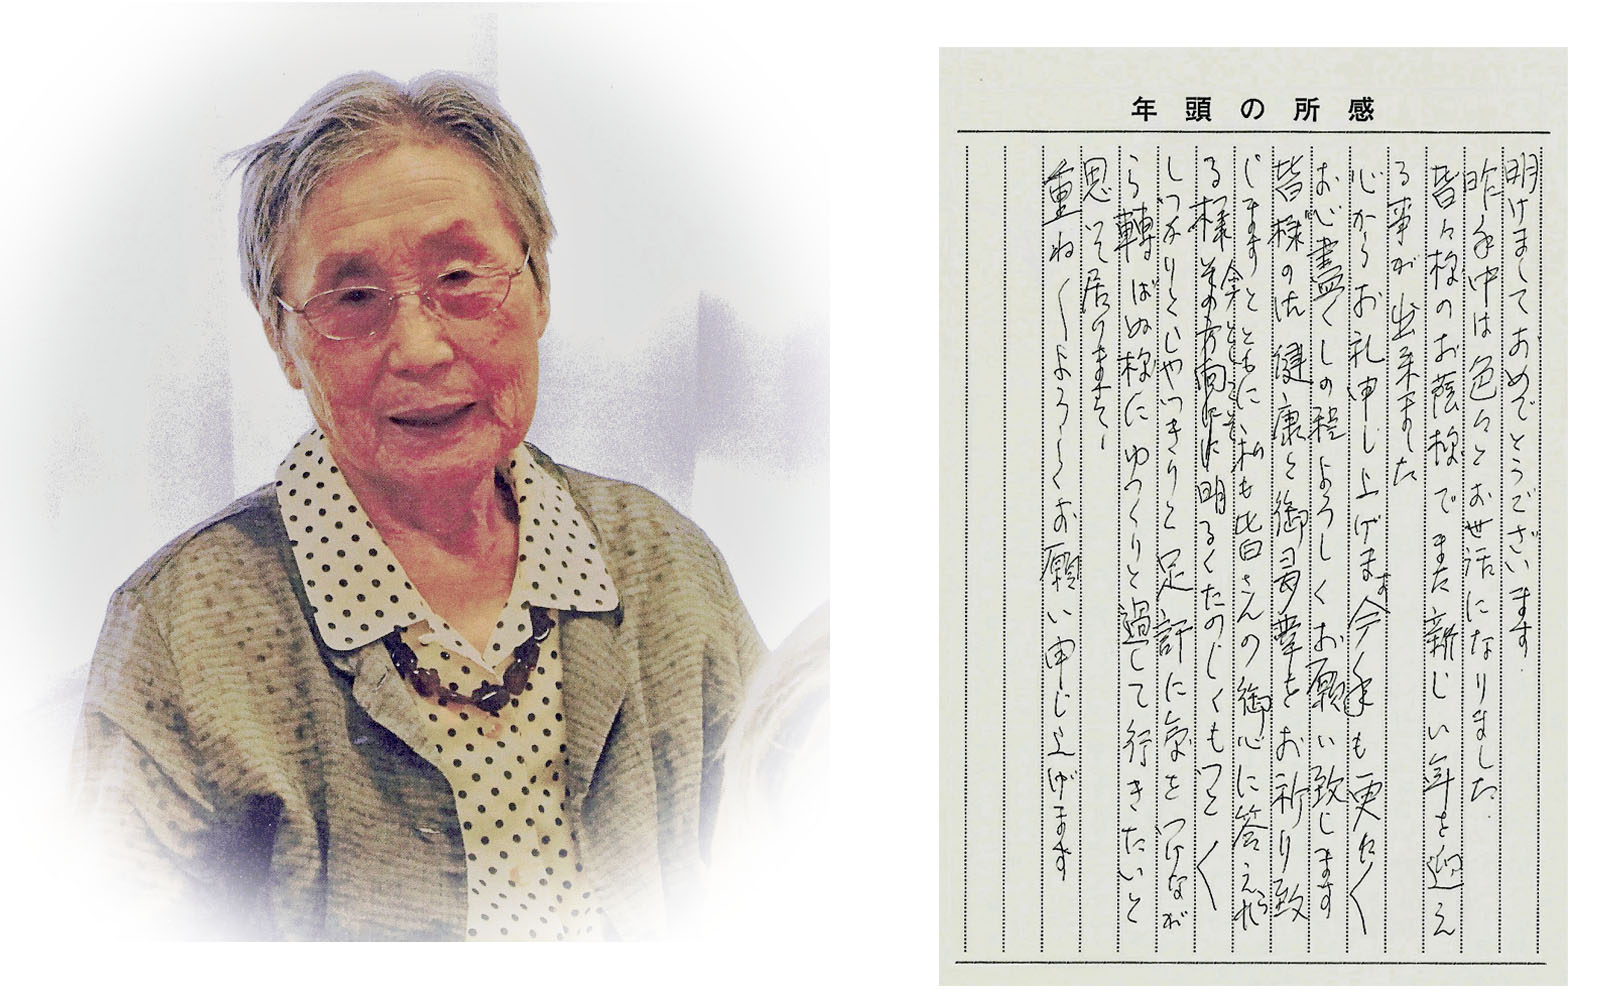 年頭の所感
明けましておめでとうございます.
昨年中は色々とお世話になりました.
皆々様のお蔭様でまた新しい年を迎え
る事が出来ました
心からお礼申し上げます今年も更々く
お心盡くしの程よろしくお願い致します
皆様の御健康と御多幸をお祈り致
しますとともに私も皆さんの御心に答えられ
る様その方向に明るくたのしくもつと〱
しつかりとしやつきりと足許に気をつけなが
ら轉ばぬ様にゆつくりと過して行きたいと
思つて居ります
重ね〱よろしくお願い申し上げます